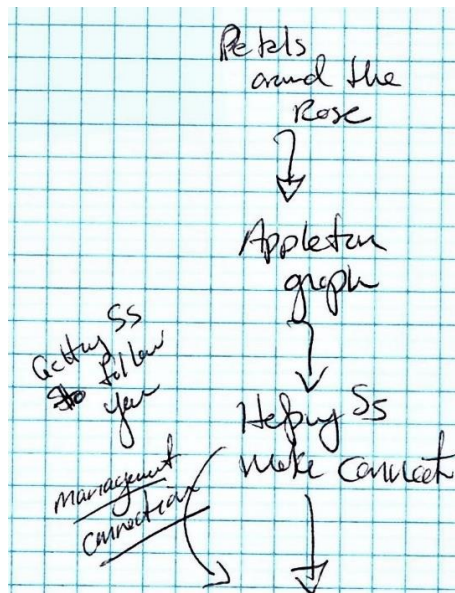 Petals
around the
Rose
Appleton
graph
Getting SS
to follow
you
Helping SS
make connect
management
connection